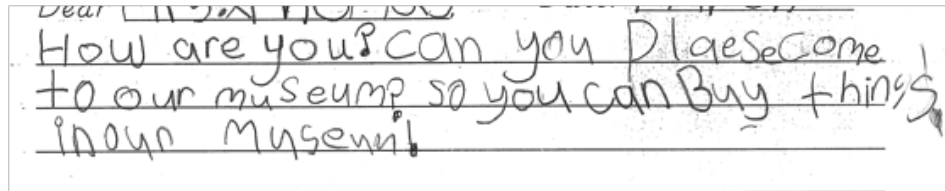 Dear
How are you? can you Plaese come
to our museum? so you can Buy things
in our Museum!